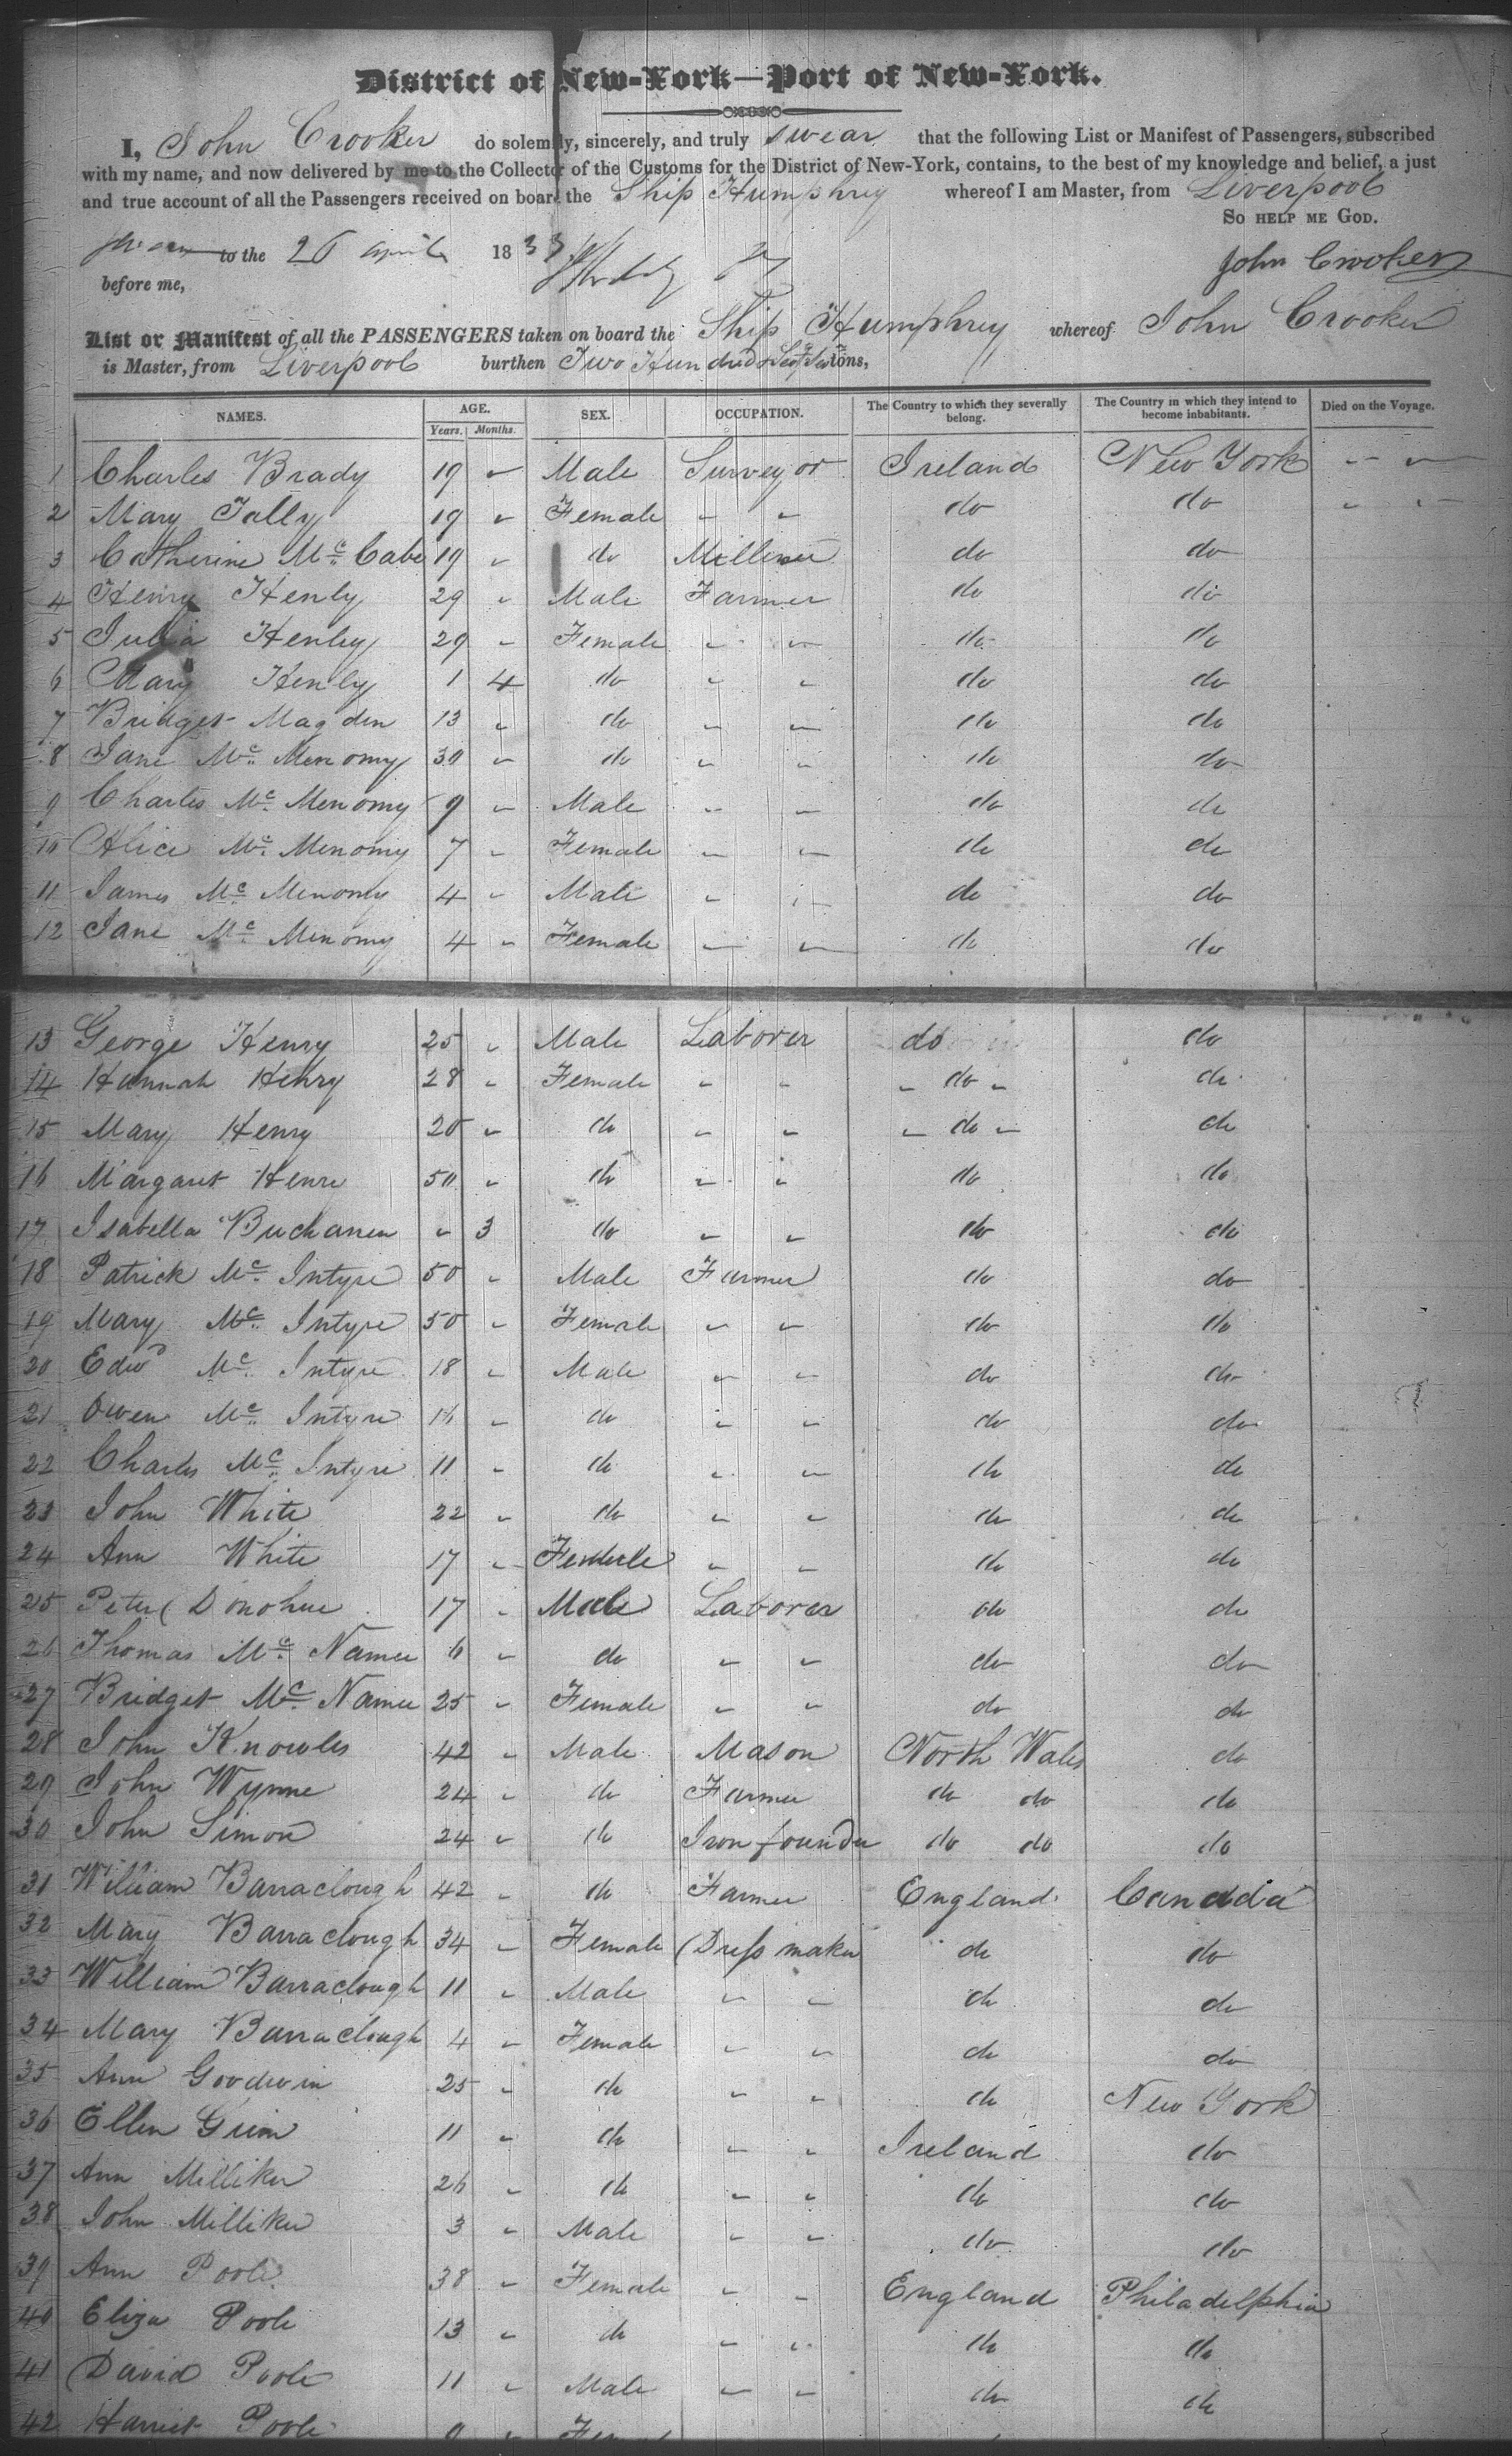 District of New-York—Port of New-York.
I, John Crooker do solemnly, sincerely, and truly swear that the following List or Manifest of Passengers, subscribed
with my name, and now delivered by me to the Collector of the Customs for the District of New-York, contains, to the best of my knowledge and belief, a just
and true account of all the Passengers received on board the Ship Humphrey whereof I am Master, from Liverpool
So help me God.
Sworn to the 26 April 1833
John Crooker
before me,
List or Manifest of all the PASSENGERS taken on board the Ship Humphrey whereof John Crooker
is Master, from Liverpool burthen Two Hundred tons,
NAMES. AGE. SEX. OCCUPATION. The Country to which they severally belong. The Country in which they intend to become inhabitants. Died on the Voyage.
Years. Months.
1 Charles Brady 19 " Male Surveyor Ireland New York " "
2 Mary Tally 19 " Female " " do do " "
3 Catherine Mc Cabe 19 " do Milliner do do
4 Henry Henly 29 " Male Farmer do do
5 Julia Henley 29 " Female " " do do
6 Mary Henly 1 4 do " " do do
7 Bridget Magden 13 " do " " do do
8 Jane Mc Menomy 30 " do " " do do
9 Charles Mc Menomy 9 " Male " " do do
10 Alice Mc Menomy 7 " Female " " do do
11 James Mc Menomy 4 " Male " " do do
12 Jane Mc Menomy 4 " Female " " do do
13 George Henry 25 " Male Laborer do do
14 Hannah Henry 28 " Female " " " do " do
15 Mary Henry 20 " do " " " do " do
16 Margaret Henre 50 " do " " do do
17 Isabella Buchanen " 3 do " " do do
18 Patrick Mc Intyre 50 " Male Farmer do do
19 Mary Mc Intyre 50 " Female " " do do
20 Edwd Mc Intyre 18 " Male " " do do
21 Owen Mc Intyre 16 " do " " do do
22 Charles Mc Intyre 11 " do " " do do
23 John White 22 " do " " do do
24 Ann White 17 " Female " " do do
25 Peter Donohue 17 " Male Laborer do do
26 Thomas Mc Namee 6 " do " " do do
27 Bridget Mc Namee 25 " Female " " do do
28 John Knowles 42 " Male Mason North Wales do
29 John Wynne 24 " do Farmer do do do
30 John Simon 24 " do Iron founder do do do
31 William Barraclough 42 " do Farmer England Canada
32 Mary Barraclough 34 " Female Dress maker do do
33 William Barraclough 11 " Male " " do do
34 Mary Barraclough 4 " Female " " do do
35 Ann Goodwin 25 " do " " do New York
36 Ellen Grim 11 " do " " Ireland do
37 Ann Milliker 26 " do " " do do
38 John Milliker 3 " Male " " do do
39 Ann Poole 38 " Female " " England Philadelphia
40 Eliza Poole 13 " do " " do do
41 David Poole 11 " Male " " do do
42 Harriet Poole 9 " Female